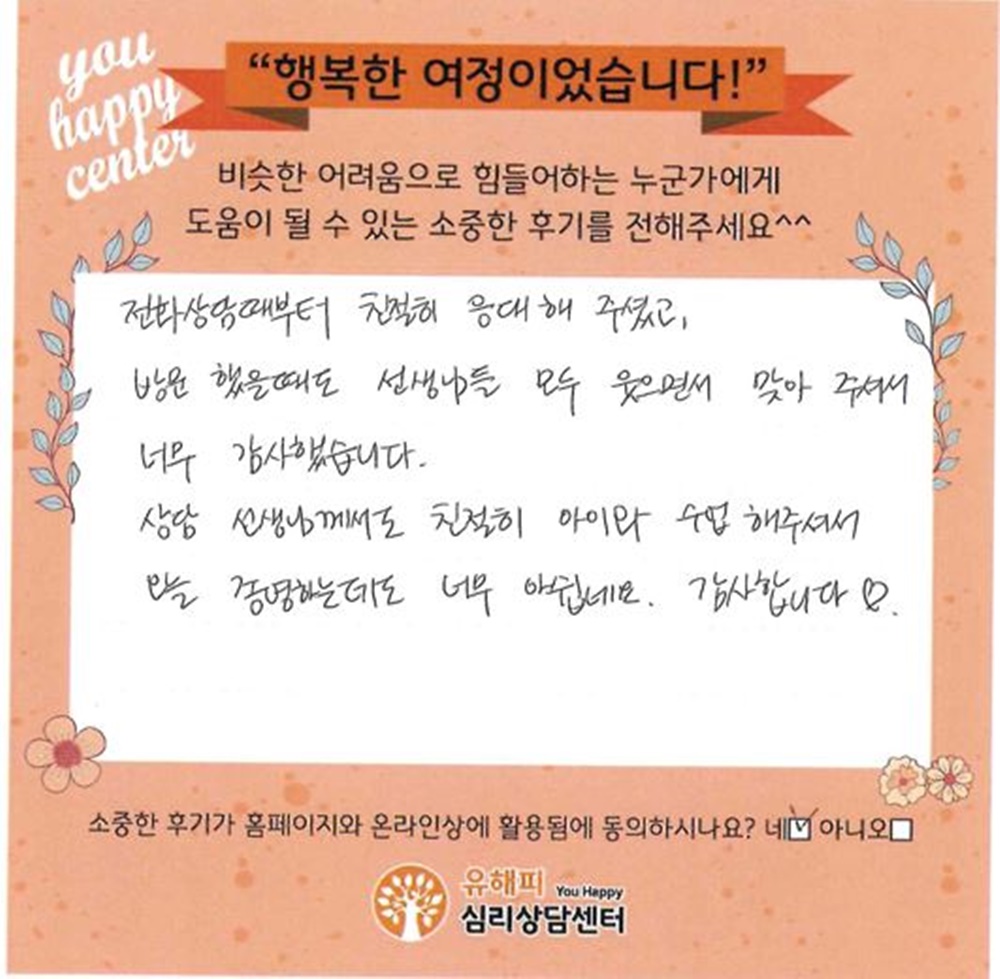 you
happy
center
“행복한 여정이었습니다!”
비슷한 어려움으로 힘들어하는 누군가에게
도움이 될 수 있는 소중한 후기를 전해주세요^^
전화상담때부터 친절히 응대해 주셨고,
방문 했을때도 선생님들 모두 웃으면서 맞아 주셔서
너무 감사했습니다.
상담 선생님께서도 친절히 아이와 수업 해주셔서
오늘 종결하는데도 너무 아쉽네요. 감사합니다♡.
소중한 후기가 홈페이지와 온라인상에 활용됨에 동의하시나요? 네☑ 아니오☐
유해피 You Happy
심리상담센터